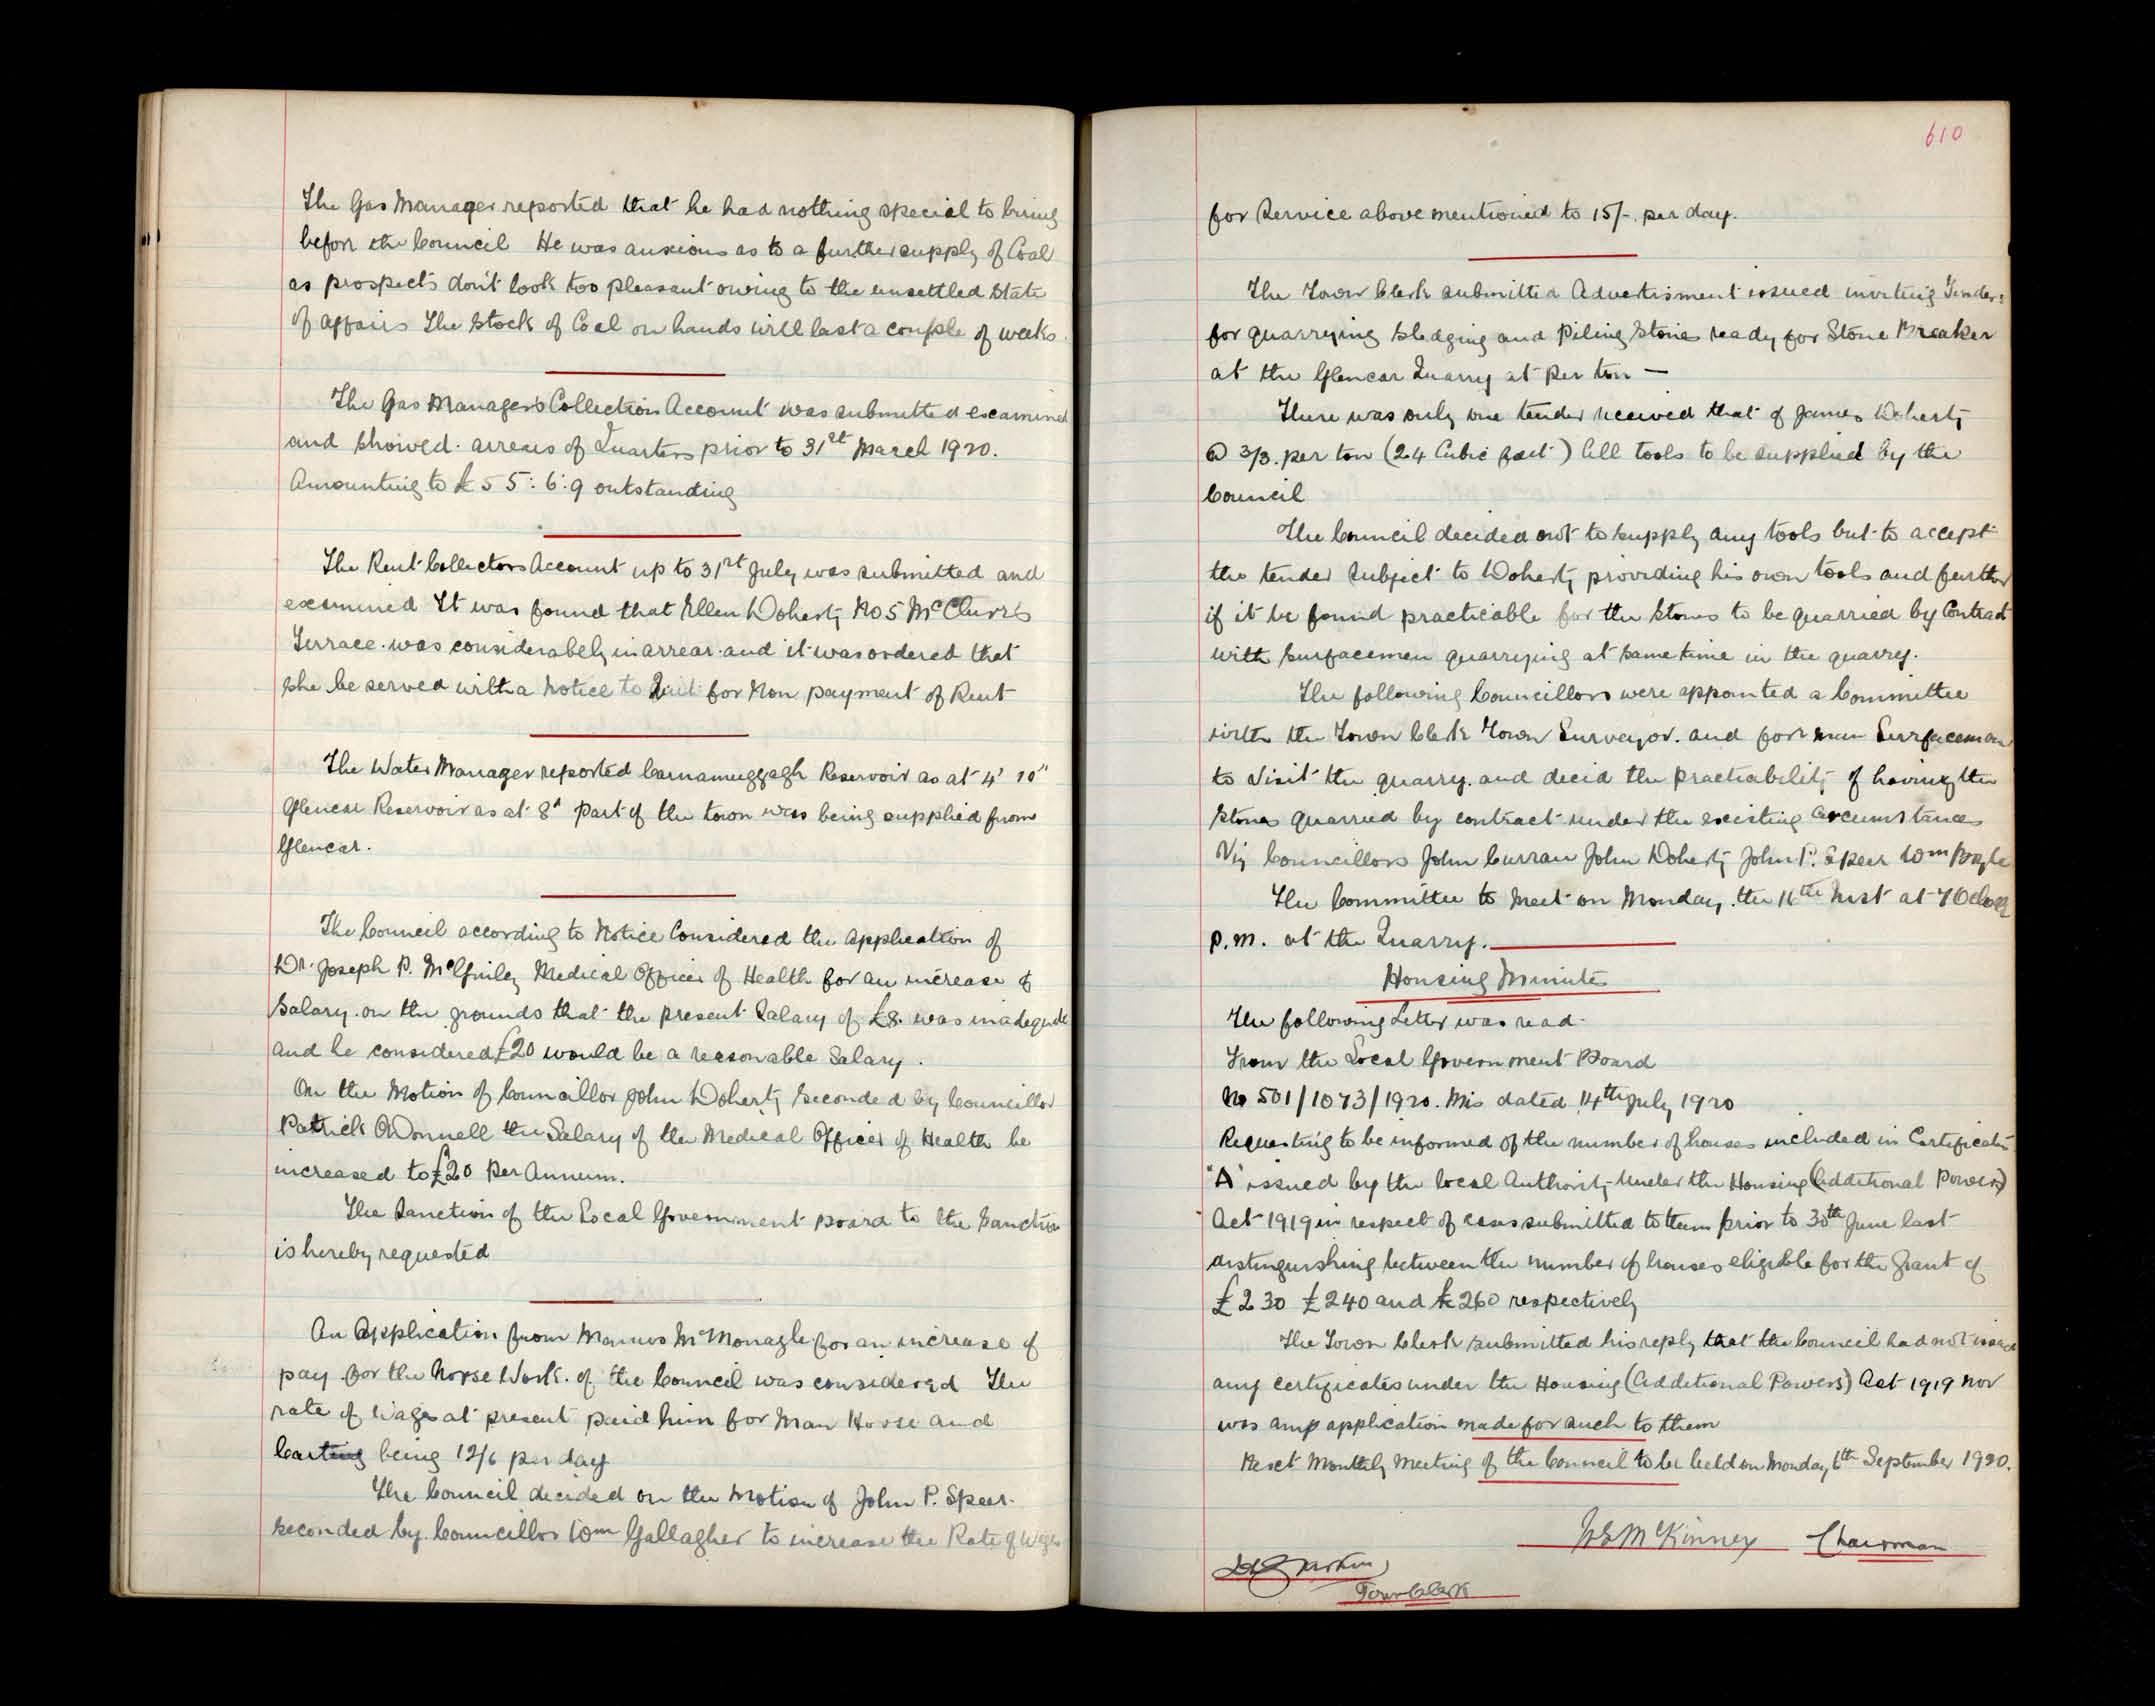 The Gas Manager reported that he had nothing special to bring
before the Council He was anxious as to a further supply of Coal
as prospects don't look too pleasant owing to the unsettled State
of affairs The Stock of Coal on hands will last a couple of weeks.
The Gas Manager's Collection Account was submitted examined
and showed. arrears of Quarters prior to 31st March 1920.
Amounting to £55:6:9 outstanding
The Rent Collectors Account up to 31st July was submitted and
examined It was found that Ellen Doherty No 5 McClure's
Terrace. was considerabely in arrear. and it was ordered that
She be served with a Notice to Quit for Non payment of Rent
The Water Manager reported Carnamuggagh Reservoir as at 4' 10"
Glencar Reservoir as at 8' Part of the town was being supplied from
Glencar.
The Council according to Notice Considered the Application of
Dr. Joseph P. McGinley Medical Officer of Health for an increase of
Salary. on the grounds that the present Salary of £8. was inadequate
and he considered £20 would be a reasonable Salary.
On the Motion of Councillor John Doherty Seconded by Councillor
Patrick O'Donnell the Salary of the Medical Officer of Health be
increased to £20 Per Annum.
The Sanction of the Local Government Board to the Sanction
is hereby requested
An Application from Manus McMonagle for an increase of
pay for the Horse Work. of the Council was considered The
rate of Wages at present paid him for Man Horse and
Carting being 12/6 per day
The Council decided on the Motion of John P. Speer.
Seconded by. Councillor Wm Gallagher to increase the Rate of Wages
610
for Service above mentioned to 15/-. per day.
The Town Clerk submitted Advertisment issued inviting Tenders
for quarrying Sledging and Piling Stones ready for Stone Breaker
at the Glencar Quarry at per ton —
There was only one tender received that of James Doherty
@ 3/3. per ton (24 Cubic feet) All tools to be supplied by the
Council
The Council decided not to supply any tools but to accept
the tender Subject to Doherty providing his own tools and further
if it be found practicable for the Stones to be quarried by Contract
with Surfacemen quarrying at same time in the quarry.
The following Councillors were appointed a Committee
with the Town Clerk Town Surveyor. and foreman Surfaceman
to visit the quarry. and decid the practicability of having the
Stones quarried by contract under the existing circumstances
Viz Councillors John Curran John Doherty John P. Speer Wm Boyle
The Committee to Meet on Monday. the 16th Inst at 7 Oclock
p.m. at the Quarry.
Housing Minutes
The following Letter was read.
From the Local Government Board
No 501/1073/1920. Mis dated 14th July 1920
Requesting to be informed of the number of houses included in Certificates
"A" issued by the local Authority Under the Housing (Additional Powers)
Act 1919 in respect of cases submitted to them prior to 30th June last
distinguishing between the number of houses eligible for the Grant of
£230 £240 and £260 respectively
The Town Clerk submitted his reply that the Council had not issued
any certificates under the Housing (Additional Powers) Act 1919 nor
was any application made for such to them
Next Monthly Meeting of the Council to be held on Monday 6th September 1920.
McKinney Chairman
Town Clerk